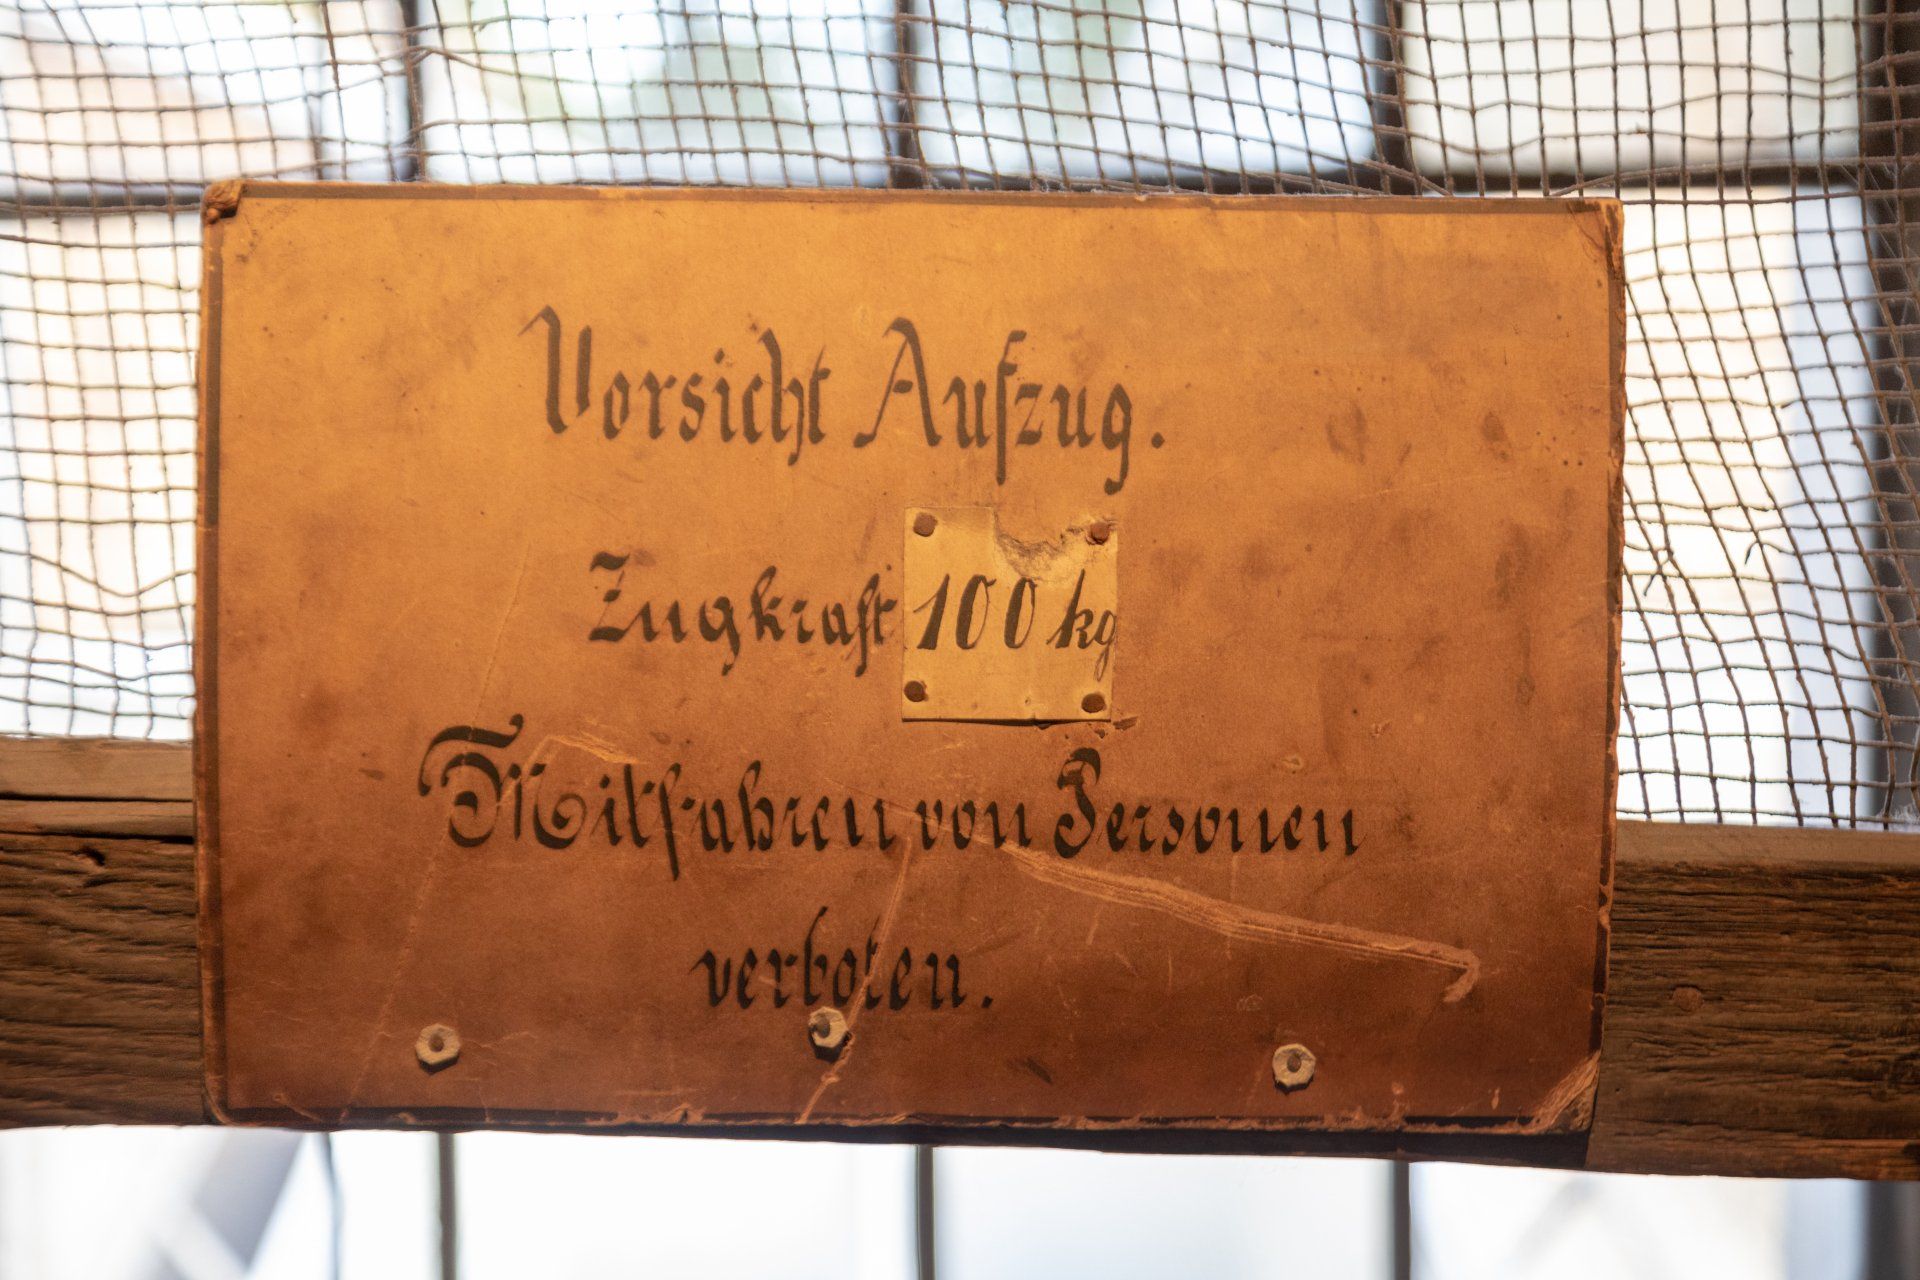 Vorsicht Aufzug.
Zugkraft 100 kg
Mitfahren von Personen
verboten.